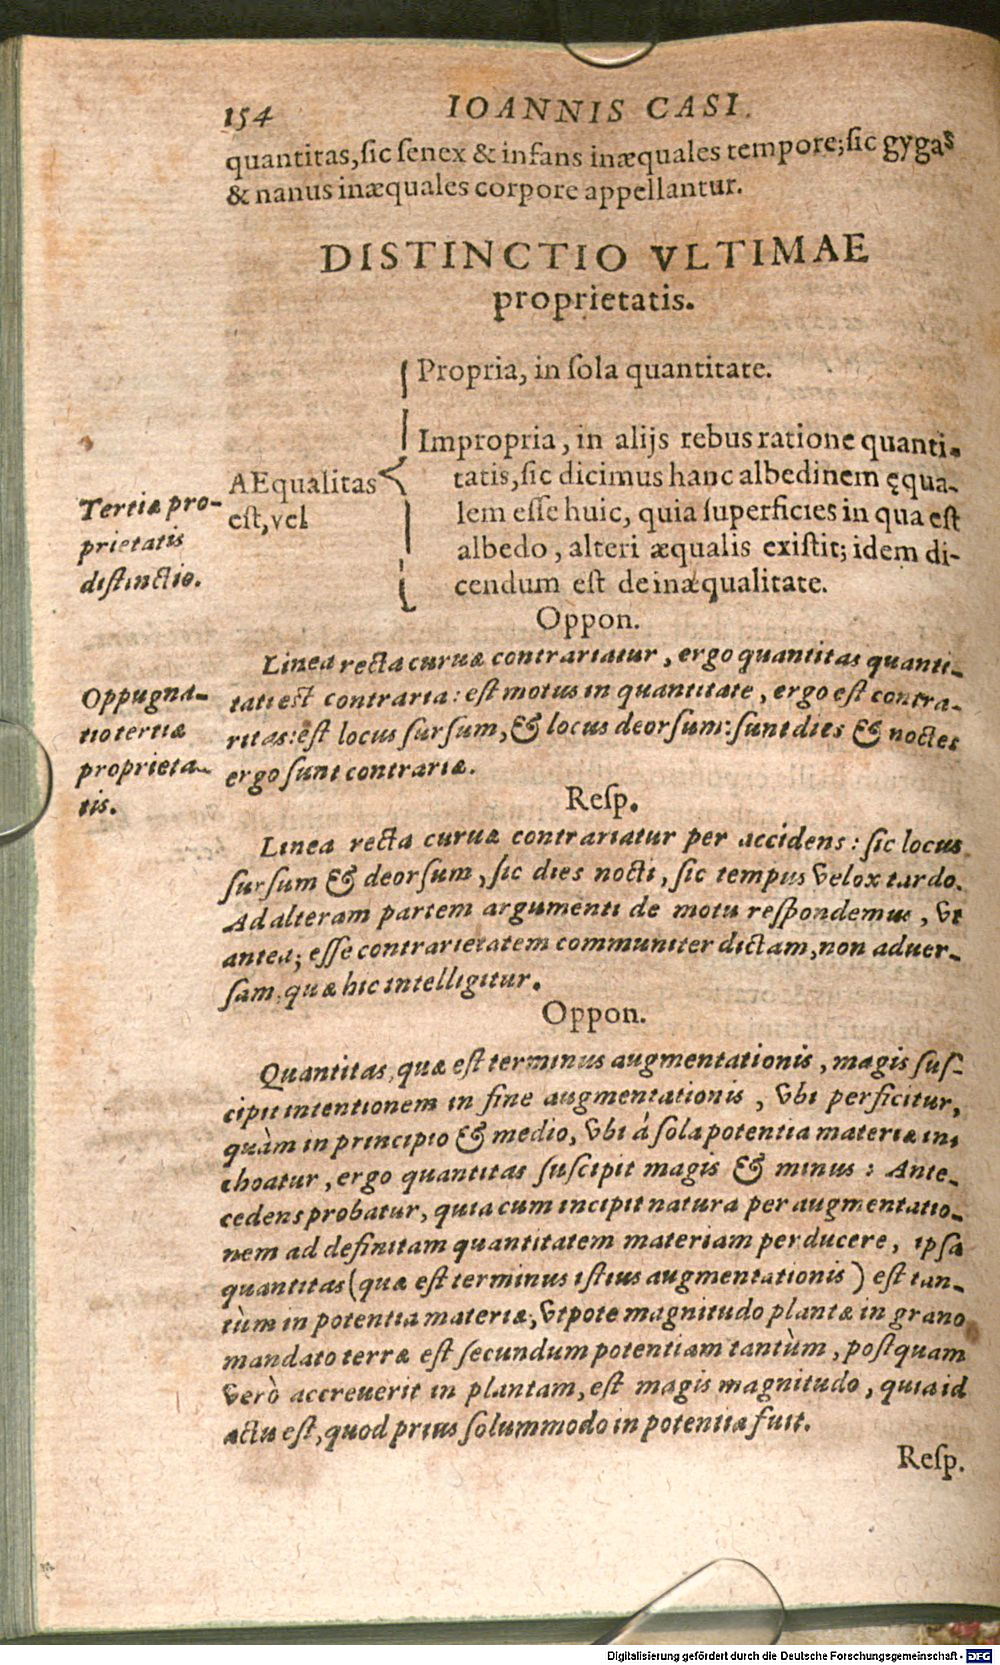 154 IOANNIS CASI.
quantitas, sic senex & infans inæquales tempore; sic gygas
& nanus inæquales corpore appellantur.
DISTINCTIO VLTIMAE
proprietatis.
Tertiæ pro-
prietatis
distinctio.
AEqualitas
est, vel
Propria, in sola quantitate.
Impropria, in alijs rebus ratione quanti-
tatis, sic dicimus hanc albedinem ęqua-
lem esse huic, quia superficies in qua est
albedo, alteri æqualis existit; idem di-
cendum est de inæqualitate.
Oppon.
Oppugna-
tio tertiæ
proprieta-
tis.
Linea recta curuæ contrariatur, ergo quantitas quanti-
tati est contraria: est motus in quantitate, ergo est contra-
ritas: est locus sursum, & locus deorsum: sunt dies & noctes
ergo sunt contrariæ.
Resp.
Linea recta curuæ contrariatur per accidens: sic locus
sursum & deorsum, sic dies nocti, sic tempus velox tardo.
Ad alteram partem argumenti de motu respondemus, vt
antea; esse contrarietatem communiter dictam, non aduer-
sam, quæ hic intelligitur.
Oppon.
Quantitas, quæ est terminus augmentationis, magis sus-
cipit intentionem in fine augmentationis, vbi perficitur,
quàm in principio & medio, vbi á sola potentia materiæ in-
choatur, ergo quantitas suscipit magis & minus: Ante-
cedens probatur, quia cum incipit natura per augmentatio-
nem ad definitam quantitatem materiam perducere, ipsa
quantitas (quæ est terminus istius augmentationis) est tan-
tùm in potentia materiæ, vtpote magnitudo plantæ in grano
mandato terræ est secundum potentiam tantùm, postquam
verò accreuerit in plantam, est magis magnitudo, quia id
actu est, quod prius solummodo in potentia fuit.
Resp.
Digitalisierung gefördert durch die Deutsche Forschungsgemeinschaft - DFG